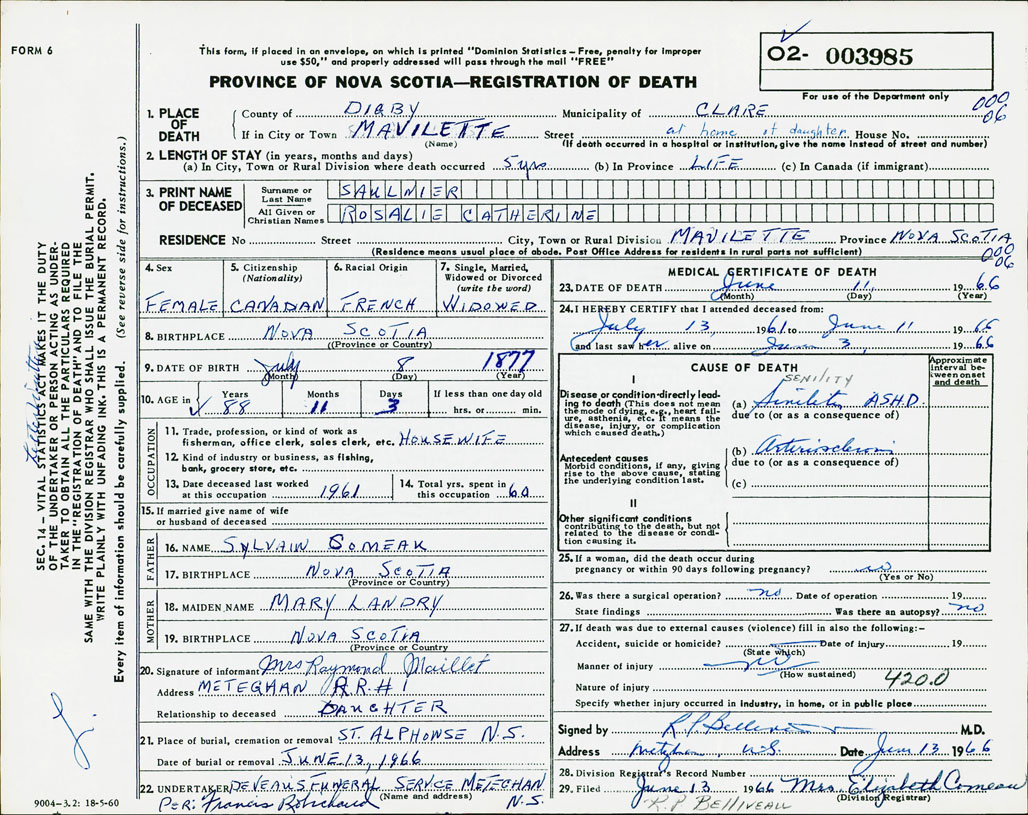 FORM 6
This form, if placed in an envelope, on which is printed "Dominion Statistics – Free, penalty for improper
use $50," and properly addressed will pass through the mail "FREE"
PROVINCE OF NOVA SCOTIA—REGISTRATION OF DEATH
02- 003985
For use of the Department only
000
06
1. PLACE OF DEATH
County of DIGBY Municipality of CLARE
If in City or Town MAVILETTE Street at home of daughter House No.
(Name) (If death occurred in a hospital or institution, give the name instead of street and number)
2. LENGTH OF STAY (in years, months and days)
(a) In City, Town or Rural Division where death occurred 5 yrs (b) In Province LIFE (c) In Canada (if immigrant)
3. PRINT NAME OF DECEASED
Surname or Last Name SAULNIER
All Given or Christian Names ROSALIE CATHERINE
RESIDENCE No Street City, Town or Rural Division MAVILETTE Province NOVA SCOTIA
(Residence means usual place of abode. Post Office Address for residents in rural parts not sufficient)
000
06
4. Sex FEMALE
5. Citizenship (Nationality) CANADIAN
6. Racial Origin FRENCH
7. Single, Married, Widowed or Divorced (write the word) WIDOWED
8. BIRTHPLACE NOVA SCOTIA
(Province or Country)
9. DATE OF BIRTH July 8 1877
(Month) (Day) (Year)
10. AGE in Years 88 Months 11 Days 3 If less than one day old hrs. or min.
OCCUPATION
11. Trade, profession, or kind of work as
fisherman, office clerk, sales clerk, etc. HOUSEWIFE
12. Kind of industry or business, as fishing,
bank, grocery store, etc.
13. Date deceased last worked
at this occupation 1961
14. Total yrs. spent in
this occupation 60
15. If married give name of wife
or husband of deceased
FATHER
16. NAME SYLVAIN COMEAK
17. BIRTHPLACE NOVA SCOTIA
(Province or Country)
MOTHER
18. MAIDEN NAME MARY LANDRY
19. BIRTHPLACE NOVA SCOTIA
(Province or Country
20. Signature of informant Mrs Raymond Maillet
Address METEGHAN R.R.#1
Relationship to deceased DAUGHTER
21. Place of burial, cremation or removal ST. ALPHONSE N.S.
Date of burial or removal JUNE 13, 1966
22. UNDERTAKER DEVEAU'S FUNERAL SERVCE METEGHAN
(Name and address) N.S.
PER: Francis Robichaud
9004-3.2: 18-5-60
MEDICAL CERTIFICATE OF DEATH
23. DATE OF DEATH June 11, 1966
(Month) (Day) (Year)
24. I HEREBY CERTIFY that I attended deceased from:
July 13, 1961 to June 11 1966
and last saw her alive on June 3, 1966
CAUSE OF DEATH
Approximate interval between onset and death
I
SENILITY
Disease or condition directly leading to death (This does not mean the mode of dying, e.g., heart failure, asthenia, etc. It means the disease, injury, or complication which caused death.)
(a) Senility ASHD
due to (or as a consequence of)
Antecedent causes
Morbid conditions, if any, giving rise to the above cause, stating the underlying condition last.
(b) Arteriosclerosis
due to (or as a consequence of)
(c)
II
Other significant conditions
contributing to the death, but not related to the disease or condition causing it.
25. If a woman, did the death occur during
pregnancy or within 90 days following pregnancy? no
(Yes or No)
26. Was there a surgical operation? no Date of operation 19
State findings Was there an autopsy? no
27. If death was due to external causes (violence) fill in also the following:–
Accident, suicide or homicide? Date of injury 19
(State which)
Manner of injury no
(How sustained)
Nature of injury 420.0
Specify whether injury occurred in industry, in home, or in public place
Signed by R.P. Belliveau M.D.
Address Meteghan, N.S. Date June 13 1966
28. Division Registrar's Record Number
29. Filed June 13 1966 Mrs. Elizabeth Comeau
(Division Registrar)
R.P BELLIVEAU
SEC. 14 – VITAL STATISTICS ACT MAKES IT THE DUTY
OF THE UNDERTAKER OR PERSON ACTING AS UNDER-
TAKER TO OBTAIN ALL THE PARTICULARS REQUIRED
IN THE "REGISTRATION OF DEATH" AND TO FILE THE
SAME WITH THE DIVISION REGISTRAR WHO SHALL ISSUE THE BURIAL PERMIT.
WRITE PLAINLY WITH UNFADING INK. THIS IS A PERMANENT RECORD.
Every item of information should be carefully supplied. (See reverse side for instructions.)